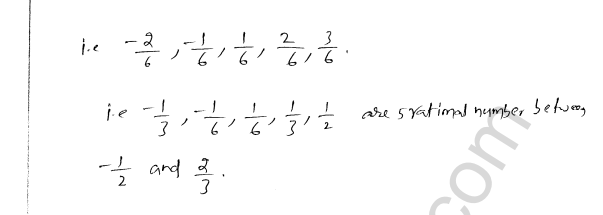 i.e -2/6, -1/6, 1/6, 2/6, 3/6.
i.e -1/3, -1/6, 1/6, 1/3, 1/2 are 5 rational number between
-1/2 and 2/3.
.com